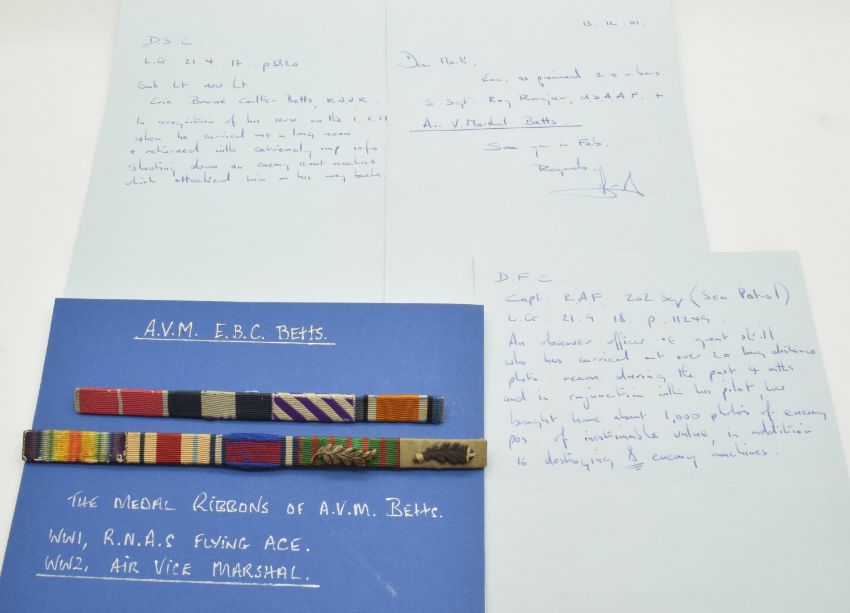 D.S.C.
L.G. 21.4.17. p3820
Sub. Lt. now Lt.
Eric Bourne Coulter Betts, R.N.V.R.
In recognition of his servs on the 1.2.17
when he carried out a long recon.
+ returned with extremely imp info.
shooting down an enemy scout machine
which attacked him on his way back.
13.12.01.
Dear Mark,
Enc. as promised 2 x r/bars
S. Sgt. Roy U.S.A.A.F. +
Air V Marshal Betts.
See you in Feb.
Regards
D.F.C.
Capt. R.A.F. 202 Sqn (Sea Patrol)
L.G. 21.9.18. p.11249.
An observer officer of great skill
who has carried out over 20 long distance
photo. recon. during the past 4 mths.
and in conjunction with his pilot, has
brought home about 1,000 photos of enemy
pos. of inestimable value, in addition
to destroying 8 enemy machines.
A.V.M. E.B.C. BETTS.
THE MEDAL RIBBONS OF A.V.M. BETTS.
WW1, R.N.A.S FLYING ACE.
WW2, AIR VICE MARSHAL.